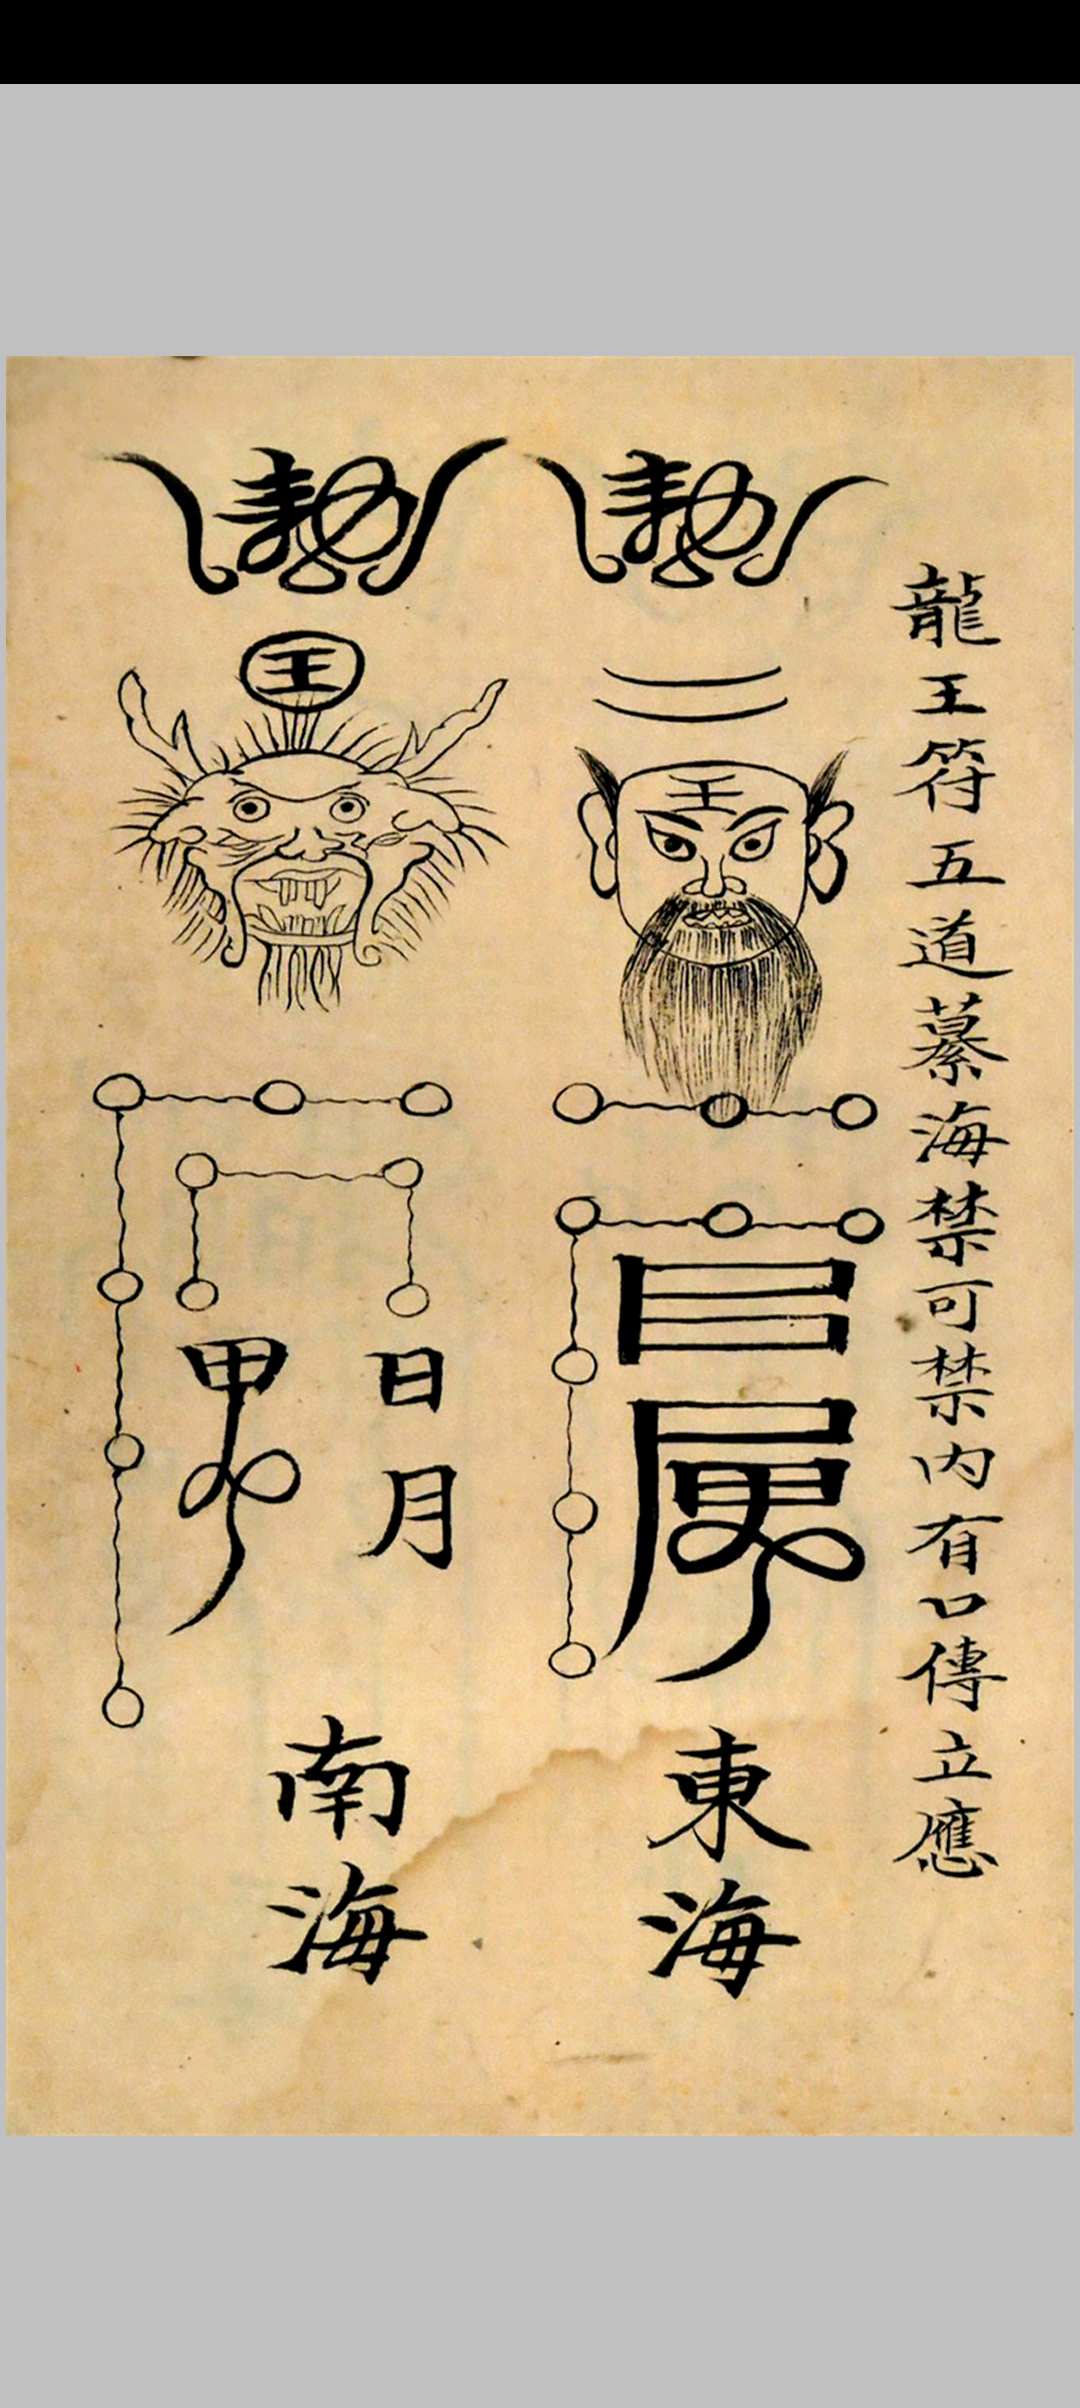 龍王符五道蓁海禁可禁内有口傳立應
勅
王
東海
勅
王
日月
甲
南海